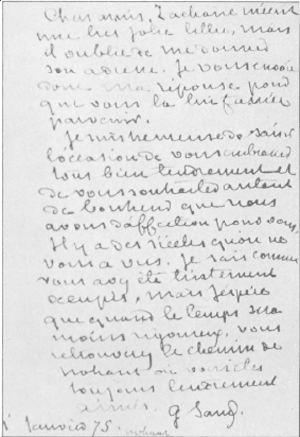 Chers amis, Zacharie m'écrit
une très jolie lettre, mais
il oublie de me donner
son adresse. Je vous envoie
donc ma réponse pour
que vous la lui fassiez
parvenir.
Je suis heureuse de saisir
l'occasion de vous embrasser
tous bien tendrement et
de vous souhaiter autant
de bonheur que nous
avons d'affection pour vous.
Il y a des siècles qu'on ne
vous a vus. Je sais comme
vous avez été tristement
occupés, mais j'espère
que quand le temps sera
moins rigoureux, vous
retrouverez le chemin de
Nohant où vous êtes
toujours tendrement
aimés. G Sand.
Janvier 75. Nohant